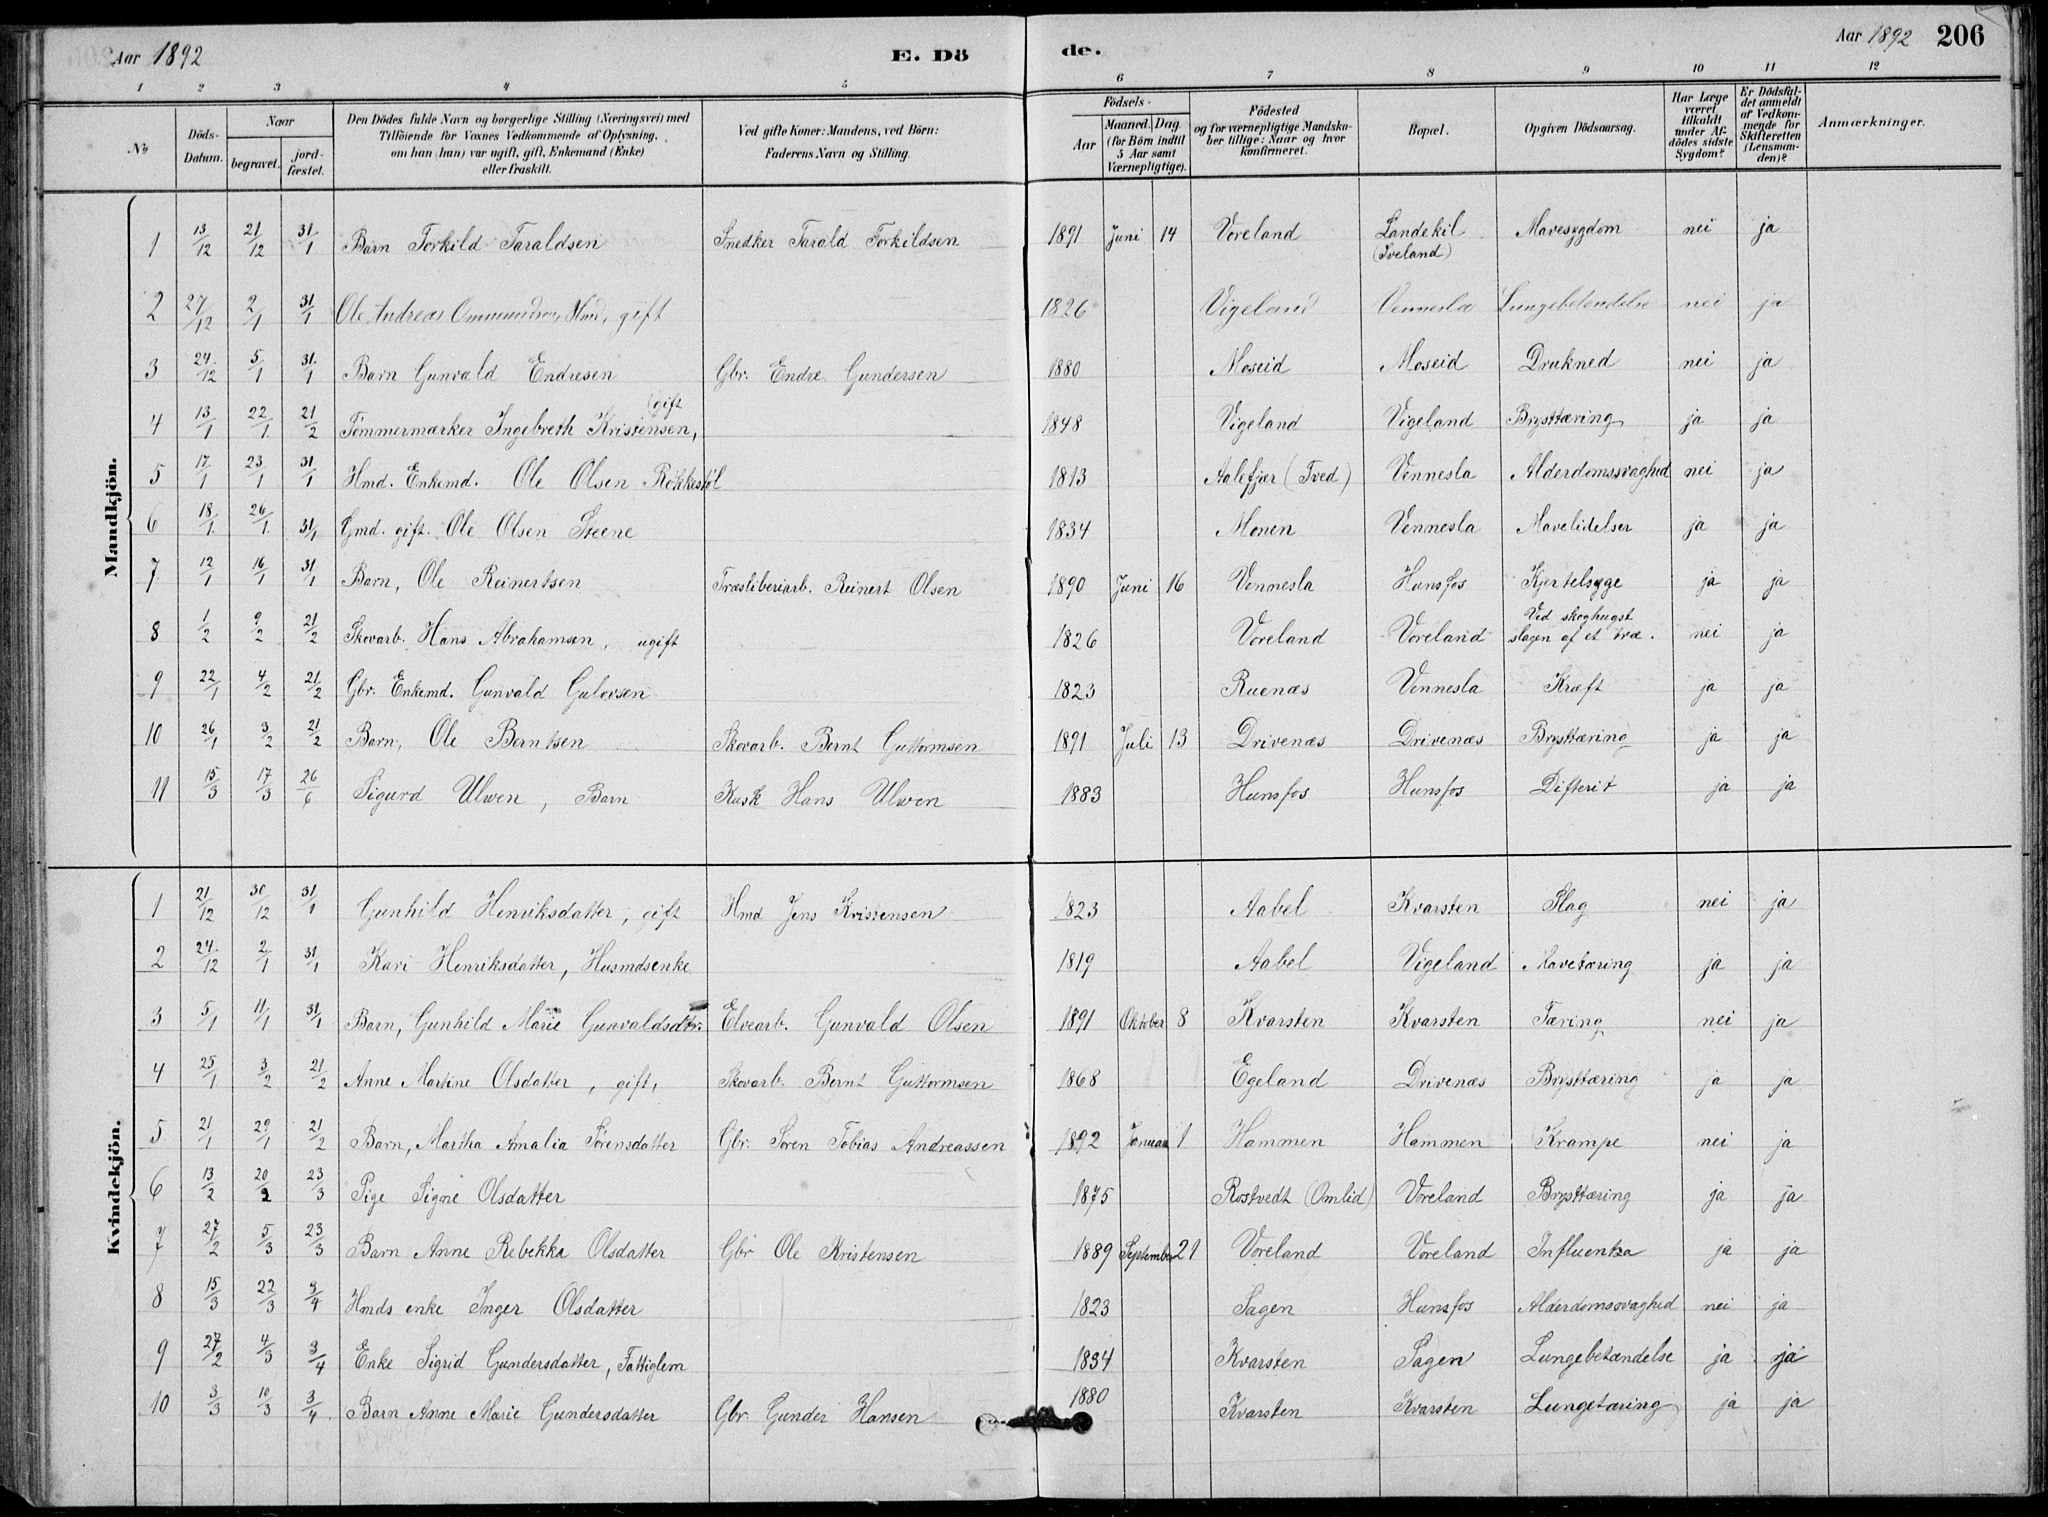 Aar 1892 E. Dö de. Aar 1892 206
1 2 3 4 5 6 7 8 9 10 11 12
No. Döds-Datum. Naar begravet. jord-fæstet. Den Dödes fulde Navn og borgerlige Stilling (Næringsvei) med Tilföiende for Voxnes Vedkommende af Oplysning, om han (hun) var ugift, gift, Enkemand (Enke) eller fraskilt. Ved gifte Koner: Mandens, ved Börn: Faderens Navn og Stilling. Födsels- Aar Maaned. Dag. (for Börn indtil 5 Aar samt Værnepligtige). Födested og for værnepligtige Mandskaber tillige: Naar og hvor konfirmeret. Bopæl. Opgiven Dödsaarsag. Har Læge været tilkaldt under Afdödes sidste Sygdom? Er Dödsfaldet anmeldt af Vedkommende for Skifteretten (Lensmanden)? Anmærkninger.
Mandkjön.
1 13/12 21/12 31/1 Barn Torkild Taraldsen Snedker Tarald Torkildsen 1891 Juni 14 Voreland Landekil (Iveland) Mavesygdom nei ja
2 27/12 2/1 31/1 Ole Andreas Ommundsen, Hmd, gift 1826 Vigeland Vennesla Lungebetendelse nei ja
3 24/12 5/1 31/1 Barn Gunvald Endresen Gbr. Endre Gundersen 1880 Moseid Moseid Druknet nei ja
4 13/1 22/1 21/2 Tömmermærker Ingebreth Kristensen, (gift 1848 Vigeland Vigeland Brysttæring ja ja
5 17/1 23/1 31/1 Hmd. Enkemd. Ole Olsen Rökkesöl 1813 Aalefjær (Tved) Vennesla Alderdomssvaghed nei ja
6 18/1 26/1 31/1 Gmd. gift. Ole Olsen Steene 1834 Monen Vennesla Mavelidelser ja ja
7 12/1 16/1 31/1 Barn, Ole Reinertsen Træsliberiarb. Reinert Olsen 1890 Juni 16 Vennesla Hunsfos Kjertelsyge ja ja
8 1/2 9/2 21/2 Skovarb. Hans Abrahamsen, ugift 1826 Voreland Voreland Ved skoghugst slagen af et træ. nei ja
9 22/1 4/2 21/2 Gbr. Enkemd. Gunvald Gulovsen 1823 Ruenæs Vennesla Kræft ja ja
10 26/1 3/2 21/2 Barn, Ole Berntsen Skovarb. Bernt Guttormsen 1891 Juli 13 Drivenæs Drivenæs Brysttæring ja ja
11 15/3 17/3 26/6 Sigurd Ulven, Barn Kusk Hans Ulven 1883 Hunsfos Hunsfos Difterit ja ja
Kvindekjön.
1 21/12 30/12 31/1 Gunhild Henriksdatter, gift Hmd Jens Kristensen 1823 Aabel Kvarsten Slag nei ja
2 24/12 2/1 31/1 Kari Henriksdatter, Husmdsenke 1819 Aabel Vigeland Mavetæring ja ja
3 5/1 11/1 31/1 Barn, Gunhild Marie Gunvaldsdtr. Elvearb. Gunvald Olsen 1891 Oktober 8 Kvarsten Kvarsten Tæring nei ja
4 25/1 3/2 21/2 Anne Martine Olsdatter, gift, Skovarb. Bernt Guttormsen 1868 Egeland Drivenæs Brysttæring ja ja
5 21/1 29/1 21/2 Barn, Martha Amalia Sörensdatter Gbr. Sören Tobias Andreassen 1892 Januar 1 Hammen Hammen Krampe nei ja
6 13/2 20/2 23/3 Pige Signe Olsdatter 1875 Rostvedt (Omlid) Voreland Brysttæring ja ja
7 27/2 5/3 23/3 Barn Anne Rebekka Olsdatter Gbr Ole Kristensen 1889 September 21 Voreland Voreland Influentza ja ja
8 15/3 22/3 3/4 Hmds enke Inger Olsdatter 1823 Sagen Hunsfos Alderdomssvaghed nei ja
9 27/2 4/3 3/4 Enke Sigrid Gundersdatter, Fattiglem 1834 Kvarsten Sagen Lungebetændelse ja ja
10 3/3 10/3 3/4 Barn Anne Marie Gundersdatter Gbr. Gunder Hansen 1880 Kvarsten Kvarsten Lungetæring ja ja